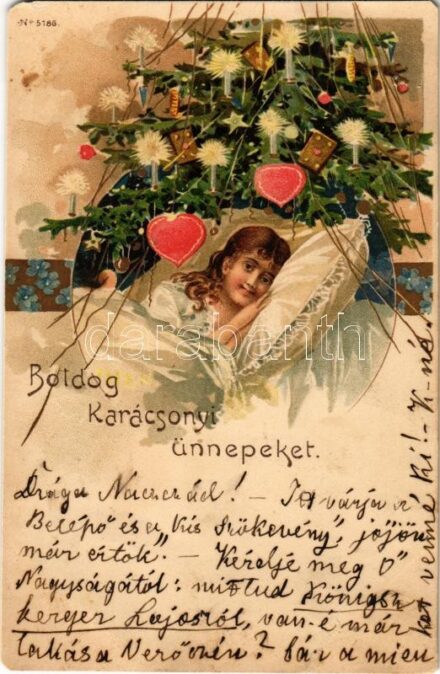 No 5186.
darabanth
Boldog
Karácsonyi
ünnepeket.
Drága ! – Itt várja a
"Belépő" és a "kis szökevény", jöjjön
már értök". – Kérdje meg Ő
Nagyságától: mit tud
Lajosról, van-é már
lakása Verőczén? Bár a mien
ket venné ki! – K-né.